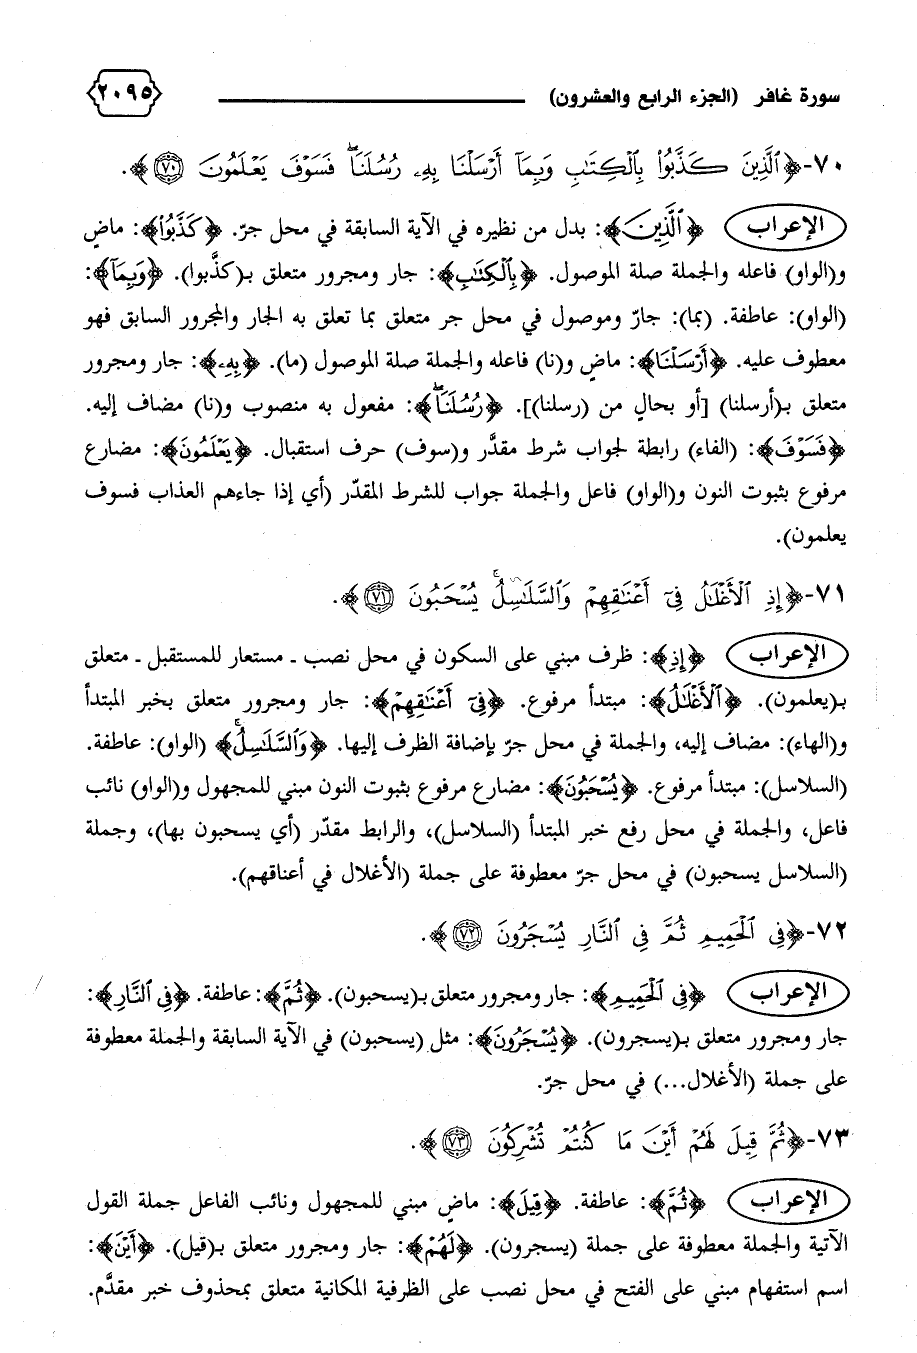 سورة غافر (الجزء الرابع والعشرون)
٢٠٩٥
٧٠-﴿ٱلَّذِينَ كَذَّبُواْ بِٱلْكِتَٰبِ وَبِمَآ أَرْسَلْنَا بِهِۦ رُسُلَنَاۖ فَسَوْفَ يَعْلَمُونَ ٧٠﴾.
الإعراب ﴿ٱلَّذِينَ﴾: بدل من نظيره في الآية السابقة في محل جرّ. ﴿كَذَّبُواْ﴾: ماضٍ
و(الواو) فاعله والجملة صلة الموصول. ﴿بِٱلْكِتَٰبِ﴾: جار ومجرور متعلق بـ(كذَّبوا). ﴿وَبِمَآ﴾:
(الواو): عاطفة. (بما): جارّ وموصول في محل جر متعلق بما تعلق به الجار والمجرور السابق فهو
معطوف عليه. ﴿أَرْسَلْنَا﴾: ماضٍ و(نا) فاعله والجملة صلة الموصول (ما). ﴿بِهِۦ﴾: جار ومجرور
متعلق بـ(أرسلنا) [أو بحالٍ من (رسلنا)]. ﴿رُسُلَنَاۖ﴾: مفعول به منصوب و(نا) مضاف إليه.
﴿فَسَوْفَ﴾: (الفاء) رابطة لجواب شرط مقدَّر و(سوف) حرف استقبال. ﴿يَعْلَمُونَ﴾: مضارع
مرفوع بثبوت النون و(الواو) فاعل والجملة جواب للشرط المقدّر (أي إذا جاءهم العذاب فسوف
يعلمون).
٧١-﴿إِذِ ٱلْأَغْلَٰلُ فِىٓ أَعْنَٰقِهِمْ وَٱلسَّلَٰسِلُ يُسْحَبُونَ ٧١﴾.
الإعراب ﴿إِذِ﴾: ظرف مبني على السكون في محل نصب ـ مستعار للمستقبل ـ متعلق
بـ(يعلمون). ﴿ٱلْأَغْلَٰلُ﴾: مبتدأ مرفوع. ﴿فِىٓ أَعْنَٰقِهِمْ﴾: جار ومجرور متعلق بخبر المبتدأ
و(الهاء): مضاف إليه، والجملة في محل جرّ بإضافة الظرف إليها. ﴿وَٱلسَّلَٰسِلُ﴾ (الواو): عاطفة.
(السلاسل): مبتدأ مرفوع. ﴿يُسْحَبُونَ﴾: مضارع مرفوع بثبوت النون مبني للمجهول و(الواو) نائب
فاعل، والجملة في محل رفع خبر المبتدأ (السلاسل)، والرابط مقدّر (أي يسحبون بها)، وجملة
(السلاسل يسحبون) في محل جرّ معطوفة على جملة (الأغلال في أعناقهم).
٧٢-﴿فِى ٱلْحَمِيمِ ثُمَّ فِى ٱلنَّارِ يُسْجَرُونَ ٧٢﴾.
الإعراب ﴿فِى ٱلْحَمِيمِ﴾: جار ومجرور متعلق بـ(يسحبون). ﴿ثُمَّ﴾: عاطفة. ﴿فِى ٱلنَّارِ﴾:
جار ومجرور متعلق بـ(يسجرون). ﴿يُسْجَرُونَ﴾: مثل (يسحبون) في الآية السابقة والجملة معطوفة
على جملة (الأغلال...) في محل جرّ.
٧٣-﴿ثُمَّ قِيلَ لَهُمْ أَيْنَ مَا كُنتُمْ تُشْرِكُونَ ٧٣﴾.
الإعراب ﴿ثُمَّ﴾: عاطفة. ﴿قِيلَ﴾: ماضٍ مبني للمجهول ونائب الفاعل جملة القول
الآتية والجملة معطوفة على جملة (يسجرون). ﴿لَهُمْ﴾: جار ومجرور متعلق بـ(قيل). ﴿أَيْنَ﴾:
اسم استفهام مبني على الفتح في محل نصب على الظرفية المكانية متعلق بمحذوف خبر مقدَّم.